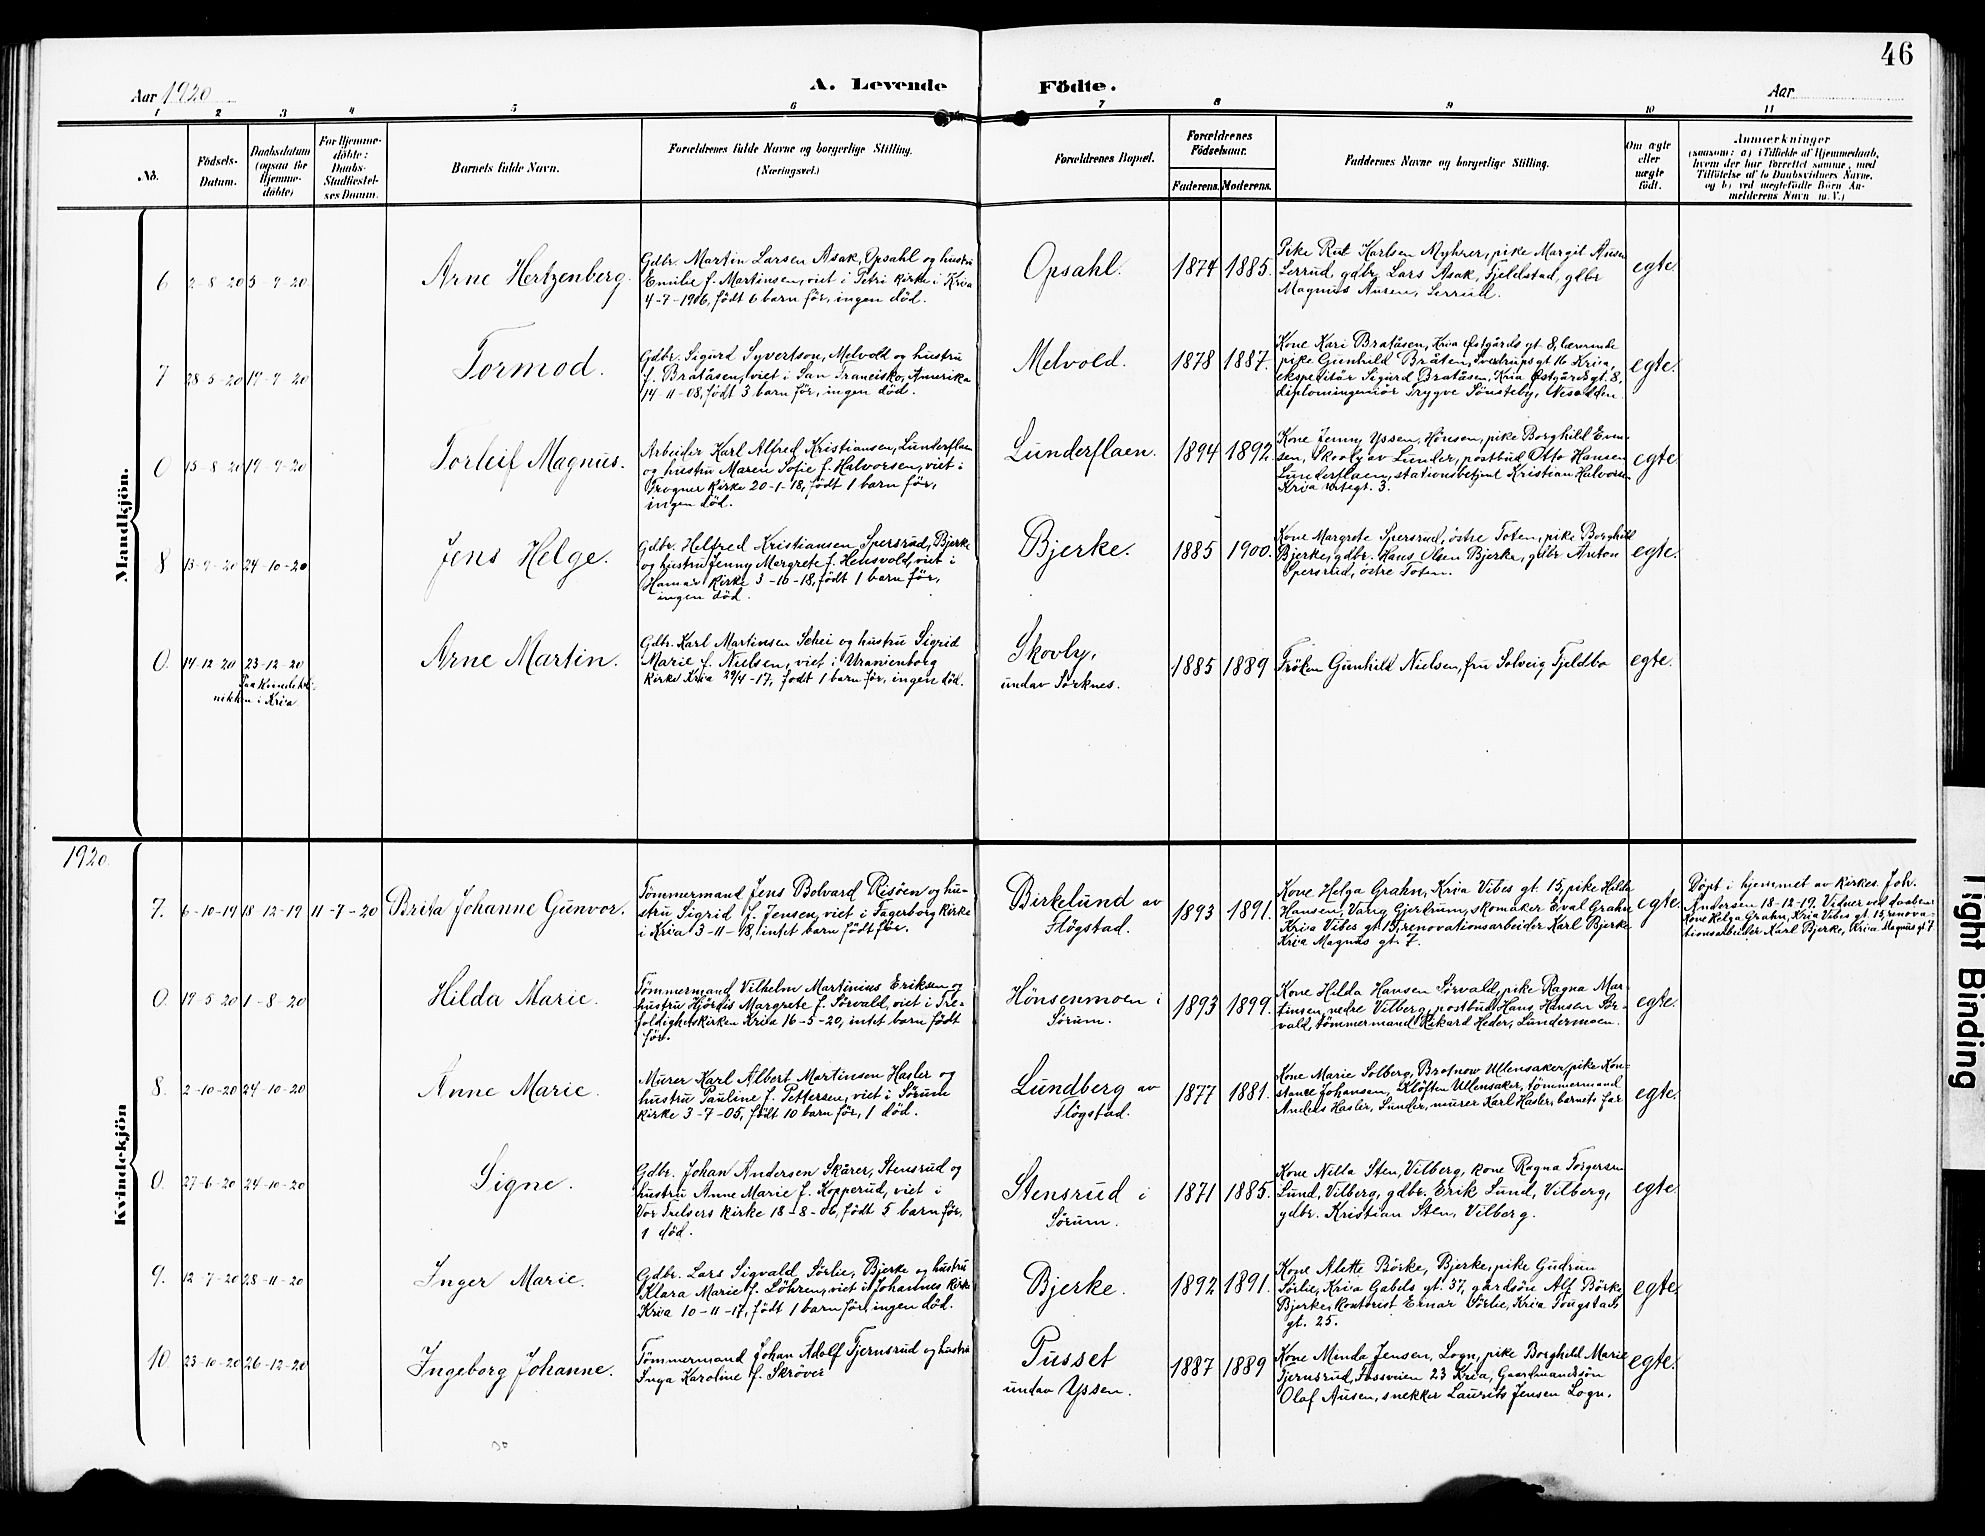 46
Aar 1920
A. Levende
Födte.
Aar
1 2 3 4 5 6 7 8 9 10 11
No.
Födsels-
Datum.
Daabsdatum
(ogsaa for
Hjemme-
döbte)
For Hjemme-
döbte:
Daabs-
Stadfæstel-
ses Datum.
Barnets fulde Navn.
Forældrenes fulde Navne og borgerlige Stilling.
(Næringsvei.)
Forældrenes Bopæl.
Forældrenes
Födselsaar.
Faderens.
Moderens.
Faddernes Navne og borgerlige Stilling.
Om ægte
eller
uægte
födt.
Anmærkninger
(saasom: a) i Tilfælde af Hjemmedaab,
hvem der har forrettet samme, med
Tilföielse af to Daabsvidners Navne,
og b) ved uægtefödte Börn An-
melderens Navn m. V.)
Mandkjön.
6 2-8-20 5-9-20
Arne Hertzenberg.
Gdbr. Martin Larsen Asak, Opsahl og hustru
Emilie f. Martinsen, viet i Petri kirke i Kria
4-7-1906, født 6 barn før, ingen död.
Opsahl.
1874 1885.
Pike Rut Karlsen Myhrer, pike Margit Ausen
Serrud, gdbr. Lars Asak, Fjeldstad, gdbr
Magnus Ausen, Serrud.
egte.
7 28-5-20 19-9-20
Tormod.
Gdbr. Sigurd Syvertson, Melvold og hustru
f. Bratåsen, viet i San Francisko, Amerika
14-11-08, født 3 barn før, ingen død.
Melvold.
1878 1887.
Kone Kari Bratåsen, Kria Østgårds gt 8, lærerinde
pike Gunhild Bråten, Sverdrups gt 16 Kria,
ekspeditör Sigurd Bratåsen, Kria Østgårds gt. 8,
diplomingeniör Trygve Sönsteby, Nesodden.
egte.
0 15-8-20 19-9-20
Torleif Magnus.
Arbeider Karl Alfred Kristiansen, Lunderflaen
og hustru Maren Sofie f. Halvorsen, viet i
Frogner kirke 20-1-18, født 1 barn før,
ingen död.
Lunderflaen.
1894 1892.
Kone Jenny Yssen, Hönsen, pike Borghild Even-
sen, Skovly av Lunder, postbud Otto Hansen
Lunderflaen, stationsbetjent Kristian Halvorsen
Kria gt. 3.
egte.
8 13-9-20 24-10-20
Jens Helge.
Gdbr. Helfred Kristiansen Spersrud, Bjerke
og hustru Jenny Margrete f. Hensvold, viet i
Hamar kirke 3-10-18, født 1 barn før,
ingen död.
Bjerke.
1885 1900.
Kone Margrete Spersrud, östre Toten, pike Borghild
Bjerke, gdbr. Hans Olsen Bjerke, gdbr Anton
Spersrud, östre Toten.
egte.
0. 14-12-20 23-12-20
Paa kli-
nikken i Kria
Arne Martin.
Gdbr. Karl Martinsen Schei og hustru Sigrid
Marie f. Nielsen, viet i Uranienborg
kirke Kria 29/4-17, født 1 barn før, ingen död.
Skovly,
undav Sørknes.
1885 1889
Fröken Gunhild Nielsen, fru Solveig Fjeldbo
egte.
1920.
Kvindekjön
7. 6-10-19 18-12-19 11-7-20
Brita Johanne Gunvor.
Tömmermand Jens Bolvard Risöen og hu-
stru Sigrid f. Jensen, viet i Fagerborg kirke
i Kria 3-11-18, intet barn født før.
Birkelund av
Flögstad.
1893 1891.
Kone Helga Grahn, Kria Vibes gt. 15, pike Hilda
Hansen, Vang Gjerdrum, skomaker Eval Grahn
Kria Vibes gt 15, renovationsarbeider Karl Bjerke
Kria Magnus gt. 7.
egte.
Döpt i hjemmet av kirkes. Joh.
Andersen 18-12-19. Vidner ved daaben:
Kone Helga Grahn, Kria Vibes gt. 15, renova-
tionsarbeider Karl Bjerke, Kria Magnus gt 7.
0. 19-5-20 1-8-20
Hilda Marie.
Tömmermand Vilhelm Martinius Eriksen og
hustru Hjördis Margrete f. Sörvald, viet i Tre-
foldighetskirken Kria 16-5-20, intet barn født
før.
Hönsenmoen i
Sörum.
1893 1899.
Kone Hilda Hansen Sörvald, pike Ragna Mar-
tinsen, nedre Vilberg, postbud Hans Hansen Sör-
vald, tömmermand Rikard Heder, Lundermoen.
egte.
8. 2-10-20 24-10-20
Anne Marie.
Murer Karl Albert Martinsen Hasler og
hustru Pauline f. Pettersen, viet i Sörum
kirke 3-7-05, født 10 barn før, 1 död.
Lundberg av
Flögstad.
1877 1881.
Kone Marie Solberg, Brotnow Ullensaker, pike Kon-
stance Johansen, Klöften Ullensaker, tömmermand
Anders Hasler, Lunder, murer Karl Hasler, barnets far
egte.
0. 27-6-20 24-10-20
Signe.
Gdbr. Johan Andersen Skårer, Stensrud og
hustru Anne Marie f. Kopperud, viet i
Vor Frelsers kirke 18-8-06, født 5 barn før,
1 död.
Stensrud i
Sörum.
1871 1885.
Kone Nilla Sten, Vilberg, kone Ragna Torgersen
Lund, Vilberg, gdbr. Erik Lund, Vilberg,
gdbr. Kristian Sten, Vilberg.
egte.
9. 12-7-20 28-11-20
Inger Marie.
Gdbr. Lars Sigvald Sörlie, Bjerke og hustru
Klara Marie f. Löhren, viet i Johannes kirke
Kria 10-11-17, født 1 barn før, ingen död.
Bjerke.
1892 1891.
Kone Alette Börke, Bjerke, pike Gudrun
Sörlie, Kria Gabels gt. 37, gårdsön Alf Börke
Bjerke, kontorist Ernar Sörlie, Kria Tougstads
gt. 25.
egte.
10. 23-10-20 26-12-20
Ingeborg Johanne.
Tömmermand Johan Adolf Tjernsrud og hustru
Inga Karoline f. Skröver
Pusset
undav Yssen.
1887 1889
Kone Minda Jensen, Logn, pike Borghild Marie
Tjernsrud, Fossveien 23 Kria, Gaardmandsön
Olaf Ausen, snekker Laurits Jensen Logn.
egte.
Tight Binding